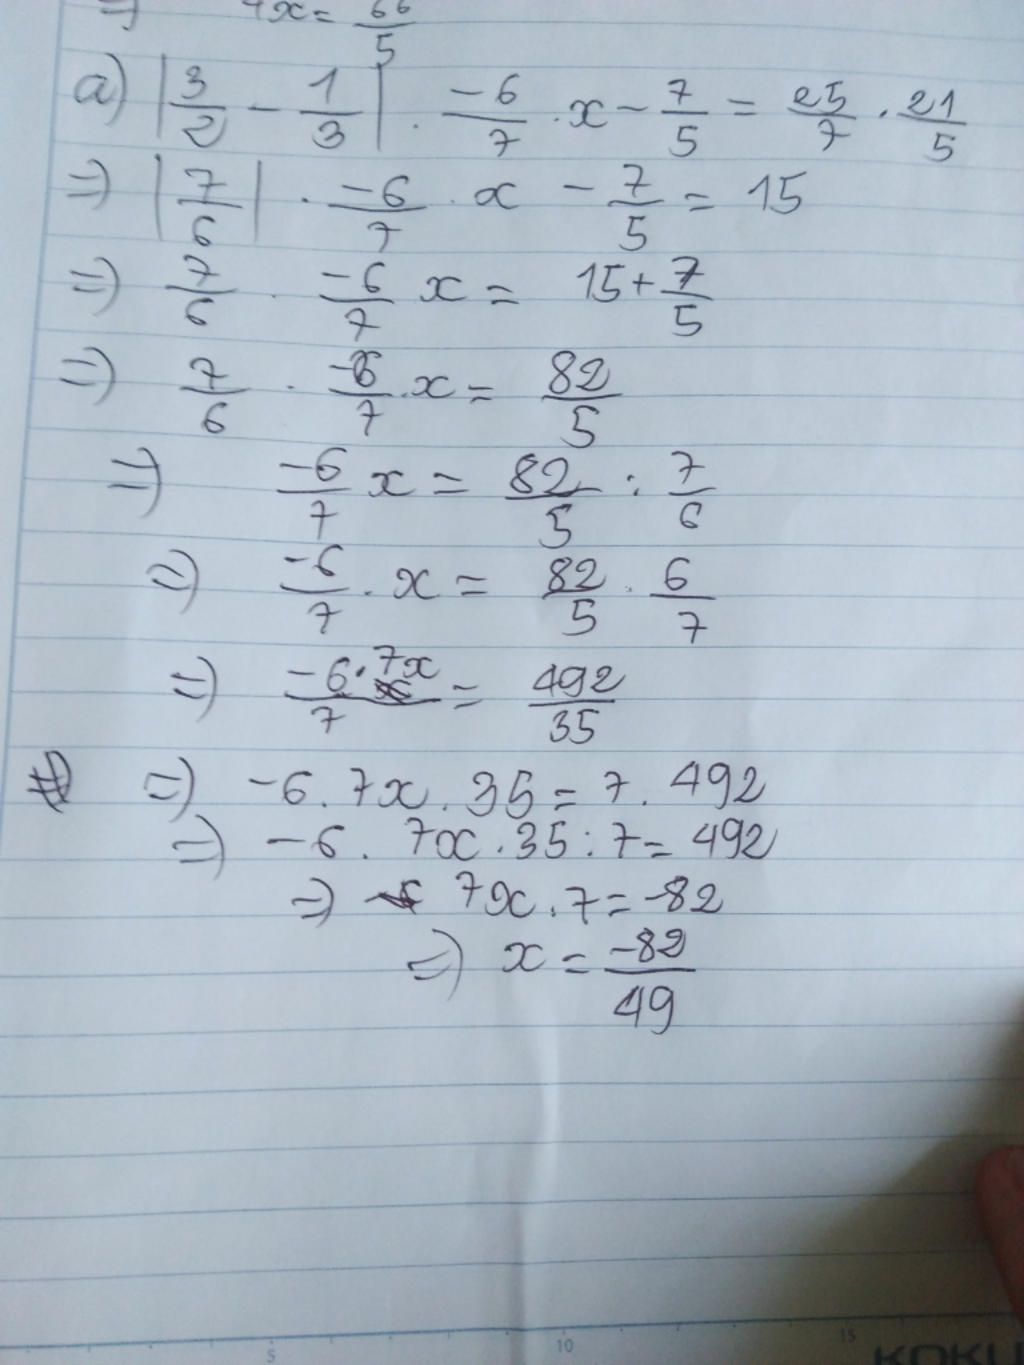 => 4x = 66/5
a) |3/2 - 1/3| . -6/7 . x - 7/5 = 25/7 . 21/5
=> |7/6| . -6/7 . x - 7/5 = 15
=> 7/6 . -6/7 x = 15 + 7/5
=> 7/6 . -6/7 . x = 82/5
=> -6/7 x = 82/5 : 7/6
=> -6/7 . x = 82/5 . 6/7
=> -6 . 7x/7 = 492/35
=> -6 . 7x . 35 = 7 . 492
=> -6 . 7x . 35 : 7 = 492
=> 7x . 7 = -82
=> x = -82/49
5 10 15
KOKU